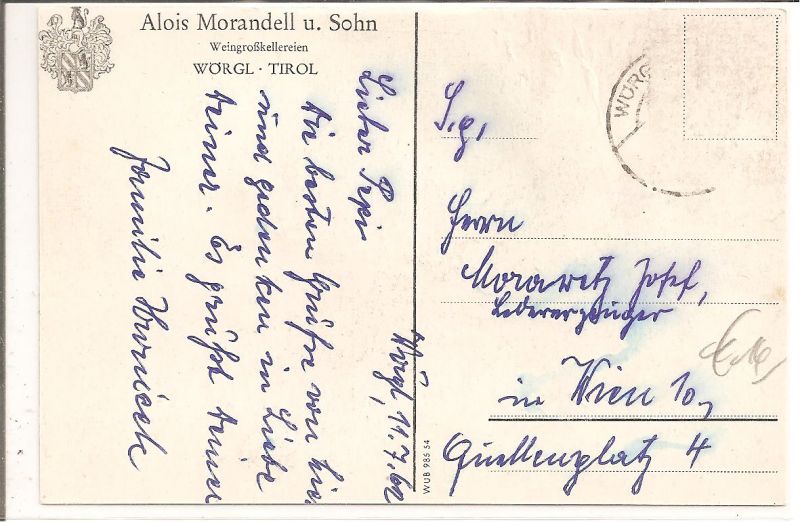 Alois Morandell u. Sohn
Weingroßkellereien
WÖRGL · TIROL
Wörgl, 11.7.62
Lieber Pepi
die besten Grüße von hier
und gedenken in Liebe
deiner. Es grüßt deine
Familie
WUB 985 54
WÖRG
S.g.
Herrn
Morawetz Josef,
Ledererzeuger
in Wien 10,
Quellenplatz 4